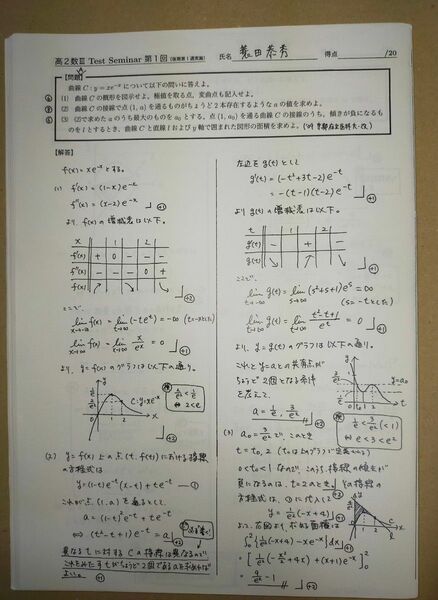 高2数Ⅲ Test Seminar 第1回 (後期第1週実施) 氏名 得点 /20
【問題】
曲線 C : y = xe^{-x} について以下の問いに答えよ。
(1) 曲線 C の概形を図示せよ。極値を取る点、変曲点も記入せよ。
(2) 曲線 C の接線で点 (1, a) を通るものがちょうど2本存在するような a の値を求めよ。
(3) (2)で求めた a のうち最大のものを a₀ とする。点 (1, a₀) を通る曲線 C の接線のうち、傾きが負になるもの
を l とするとき、曲線 C と直線 l および y 軸で囲まれた図形の面積を求めよ。
【解答】
f(x) = xe^{-x} とする。
(1) f'(x) = (1-x)e^{-x}
f''(x) = (x-2)e^{-x} +1
より f(x) の増減表は以下。
x 1 2
f'(x) + 0 - - -
f''(x) - - - 0 +
f(x) +2
ここで、
lim_{x→-∞} f(x) = lim_{t→∞} (-te^{t}) = -∞ (t=-xとした)
lim_{x→∞} f(x) = lim_{x→∞} x/e^{x} = 0 +1
より、y=f(x) のグラフは以下の通り。
y
1/e
2/e²
O 1 2 x
C: y=xe^{-x}
2/e² < 1/e
⇔ 2<e
+2
(2) y=f(x) 上の点 (t, f(t)) における接線
の方程式は
y=(1-t)e^{-t}(x-t)+te^{-t} ①
これが点 (1, a) を通るとして、
a = (1-t)²e^{-t} + te^{-t}
⇔ (t²-t+1)e^{-t} = a +2
異なる t に対する C の接線は異なるので
これをみたす t がちょうど2個であるaを求めれば
よい。 +1
左辺を g(t) として
g'(t) = (-t²+3t-2)e^{-t}
= -(t-1)(t-2)e^{-t} +1
より g(t) の増減表は以下。
t 1 2
g'(t) - + -
g(t) +2
ここで、
lim_{t→-∞} g(t) = lim_{s→∞} (s²+s+1)e^{s} = ∞
(s=-tとした)
lim_{t→∞} g(t) = lim_{t→∞} (t²-t+1)/e^{t} = 0 +1
より、y=g(t) のグラフは以下の通り。
これと y=a との共有点が
ちょうど2個となる条件
を考えて、
a = 1/e, 3/e² +2
y
y=a₀
t
1/e < 3/e² (<1)
⇔ e<3<e²
(3) a₀ = 3/e² で、このとき
t = t₀, 2
0<t₀<1 なので、このうち、接線の傾きが
負になるのは、t=2のとき。 その接線の
方程式は、①に代入して
y = 1/e²(-x+4) +2
よって、右図より、求める面積は
∫₀² {1/e²(-x+4) - xe^{-x}}dx
= [1/e²(-x²/2+4x) + (x+1)e^{-x}]₀²
= 9/e² - 1